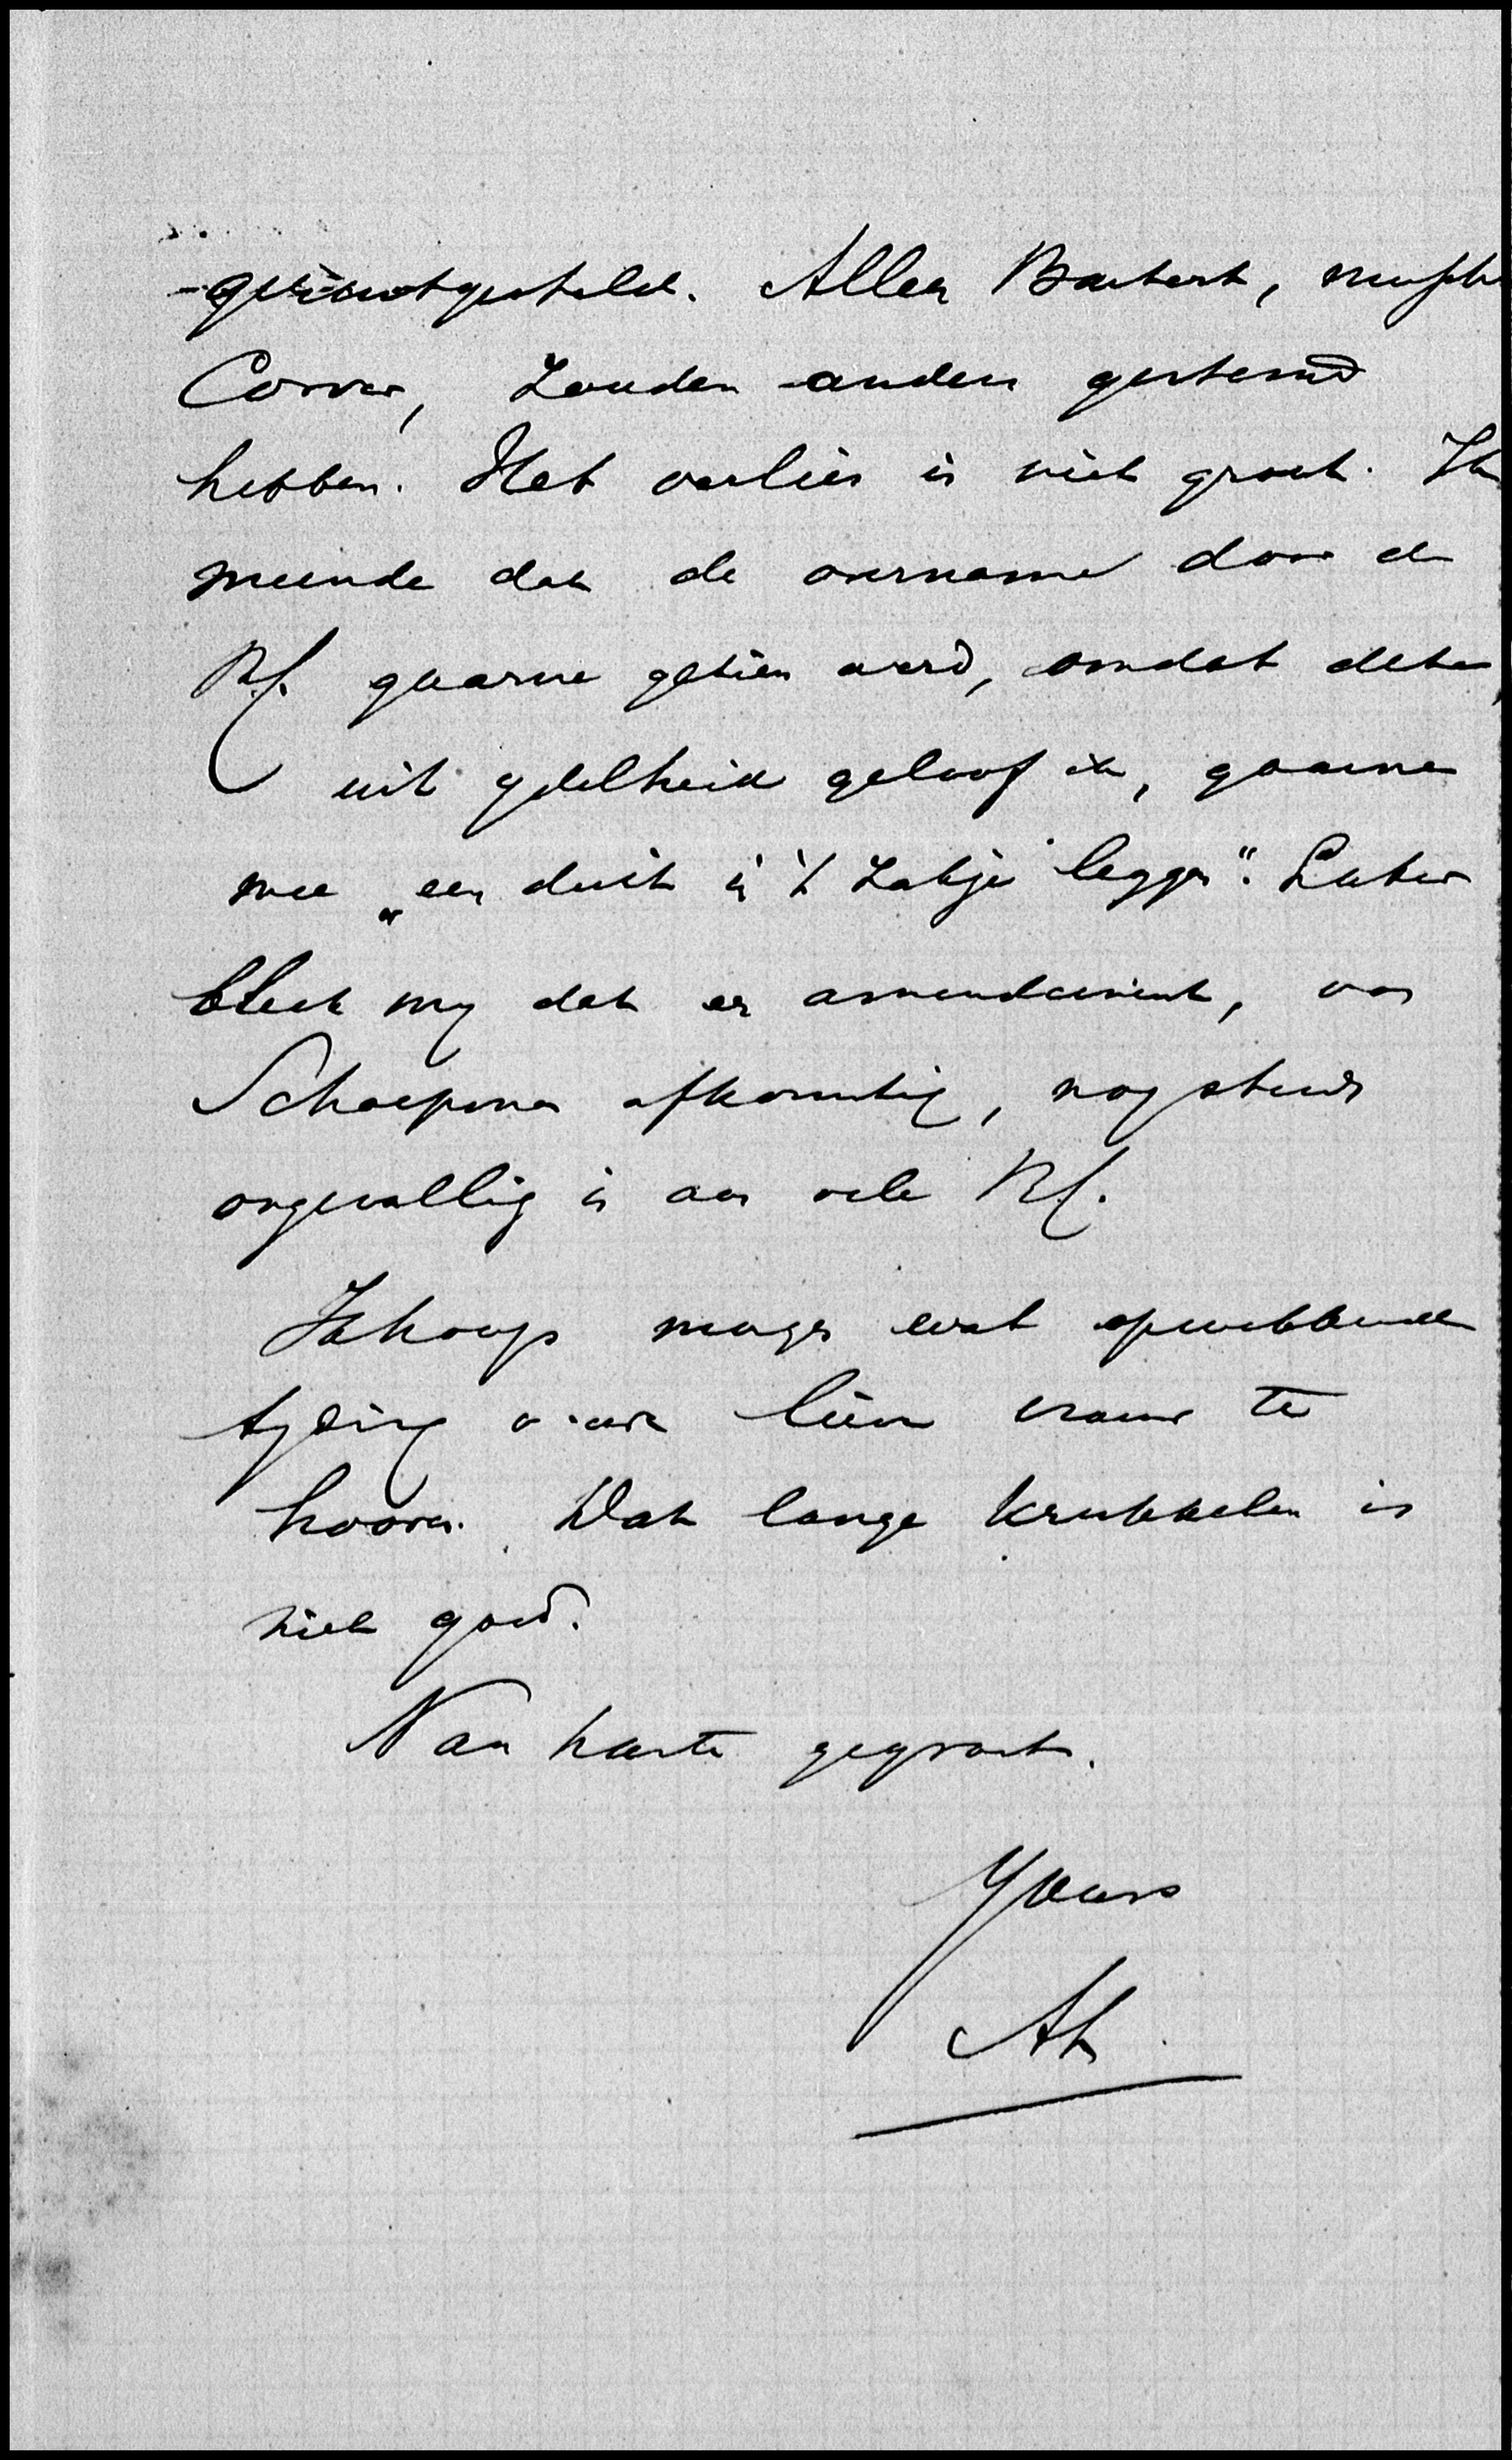 gerustgesteld. Alleen Bastert,
Corver, zouden anders gestemd
hebben. Het verlies is niet groot. Ik
meende dat de overname door de
Rf. gaarne gezien werd, omdat deze
uit ydelheid geloof ik, gaarne
mee „een duit in 't zakje leggen". Later
bleek my dat er amendement, van
Schaepman afkomstig, nog steeds
ongevallig is aan vele Rf.
Ik hoop morgen wat opwekkender
tyding over uwe lieve vrouw te
hooren. Dat lange krukkelen is
niet goed.
Van harte gegroet.
Yours
AK